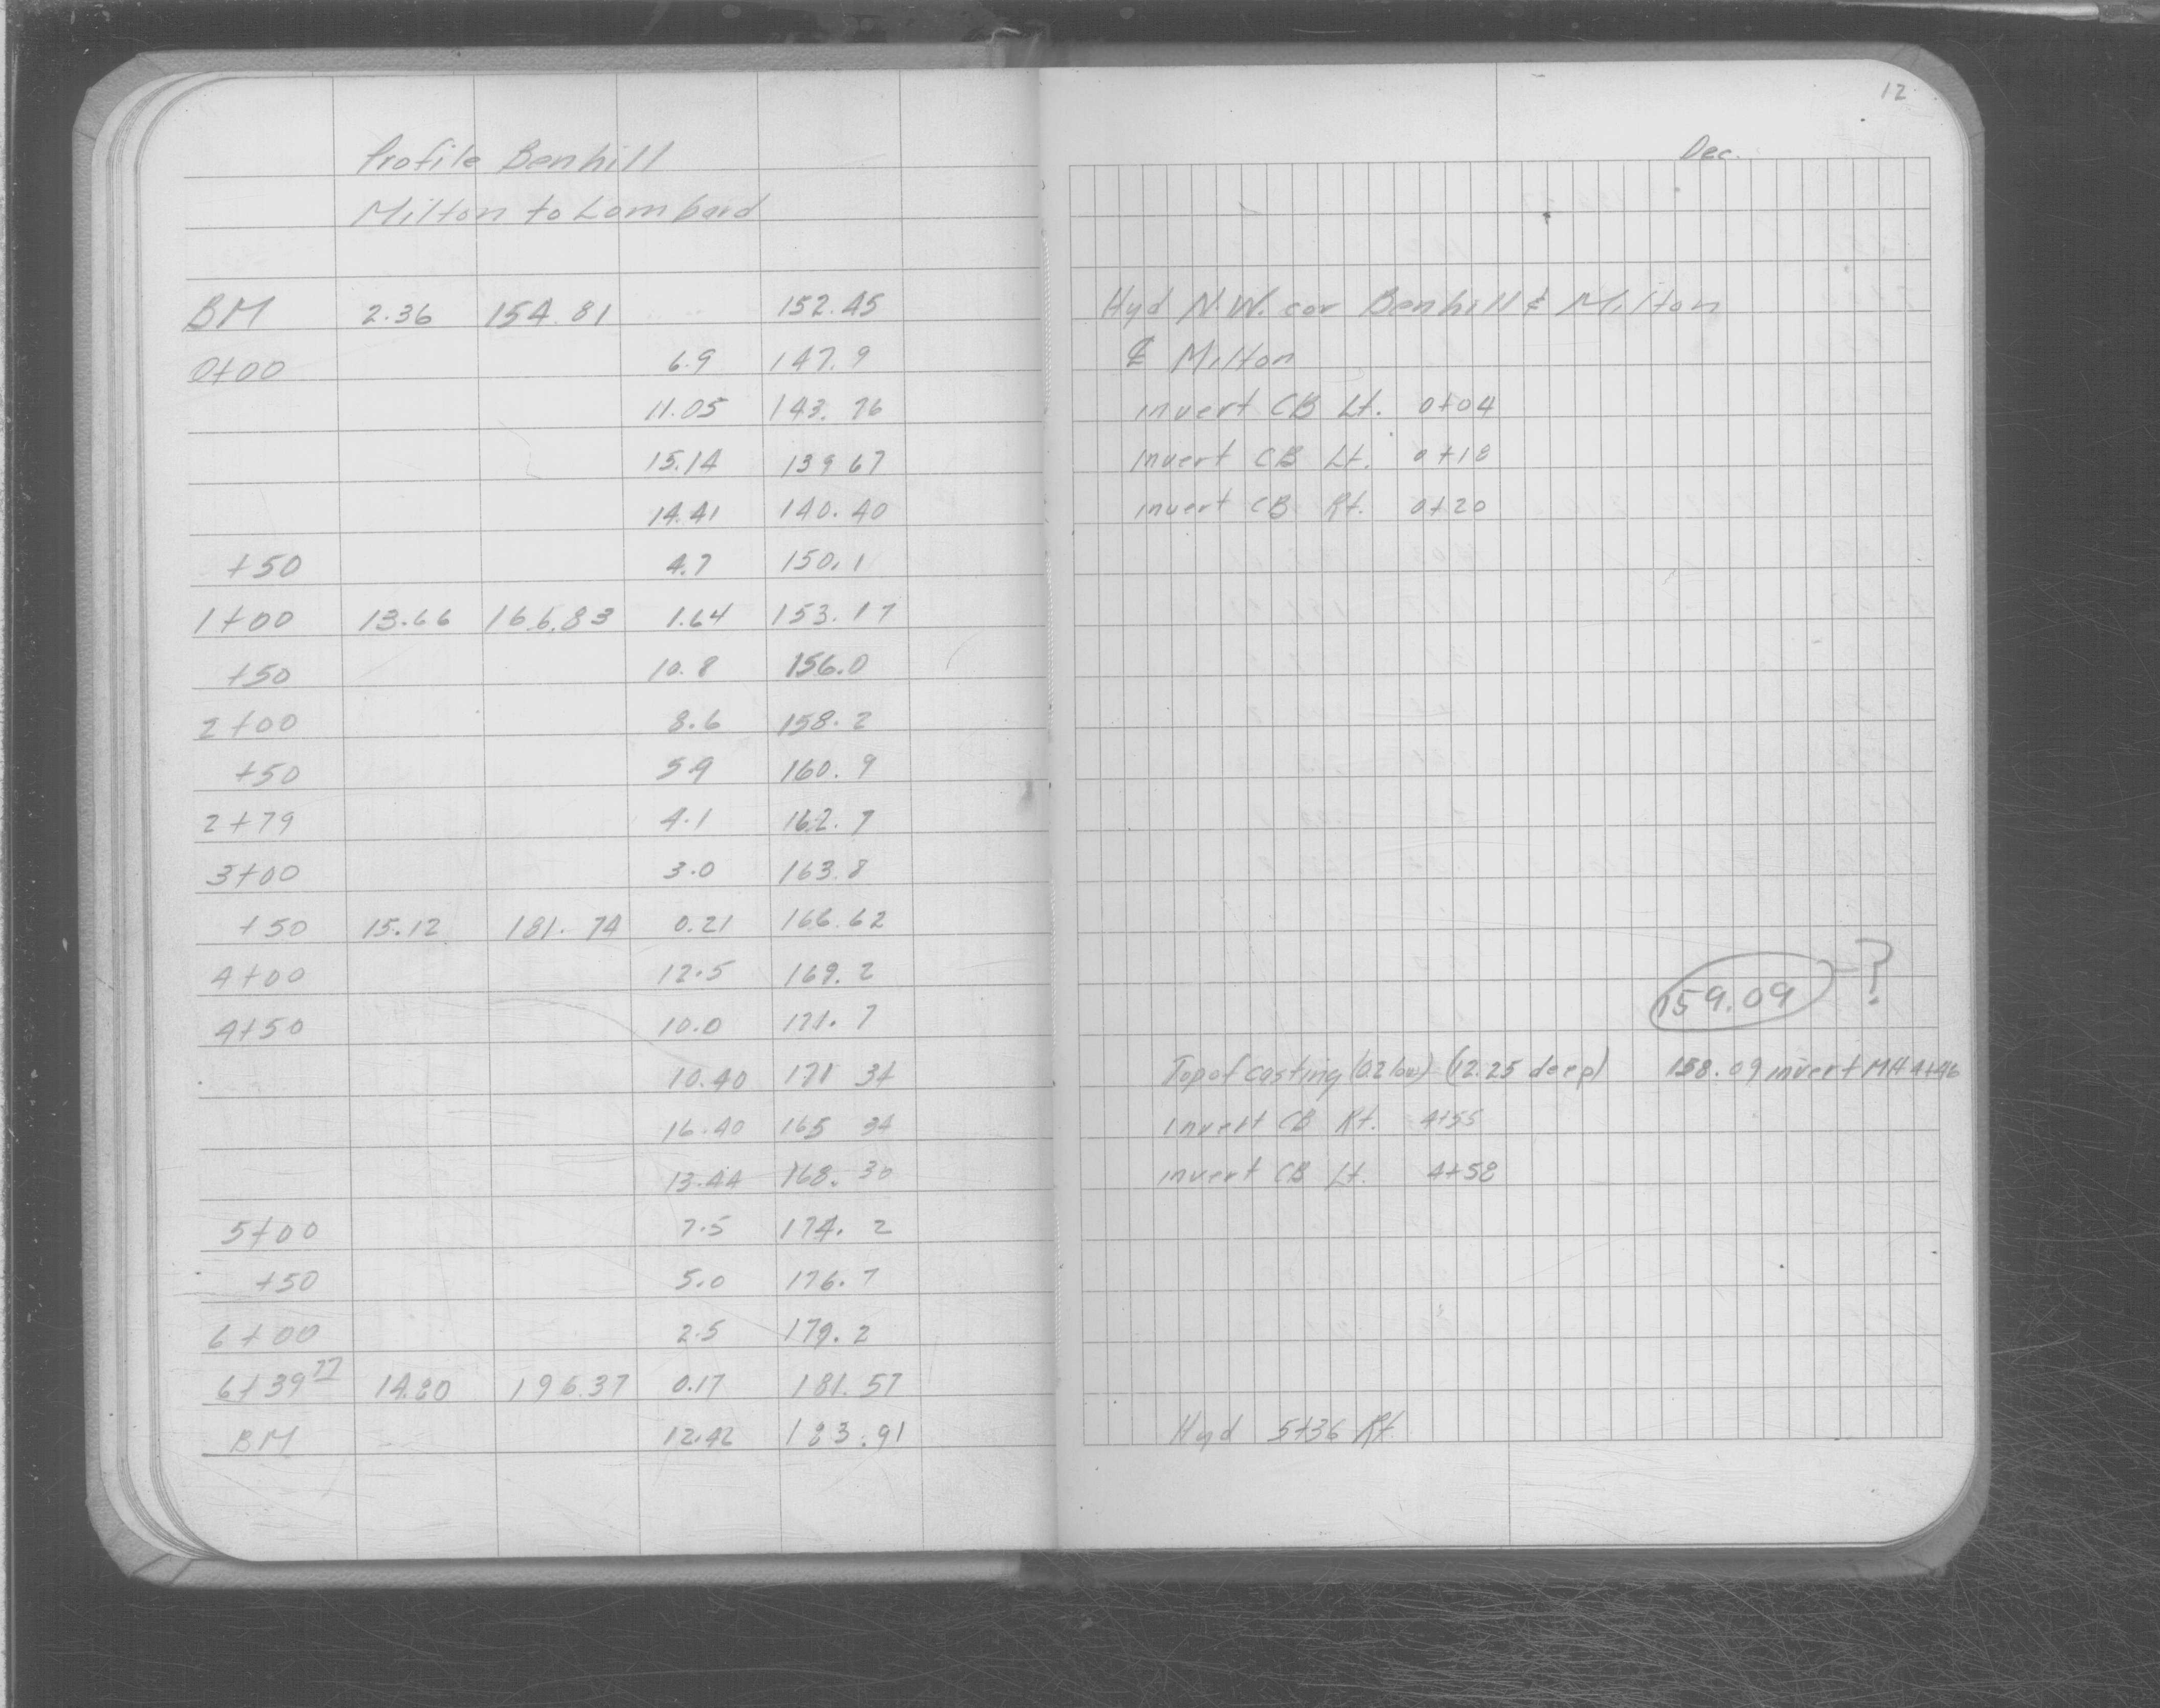 12
Dec.
Profile Benhill
Milton to Lombard
BM 2.36 154.81 152.45 Hyd N.W. cor Benhill & Milton
0+00 6.9 147.9 ℄ Milton
11.05 143.76 invert CB Lt. 0+04
15.14 139 67 invert CB Lt. 0+18
14.41 140.40 invert CB Rt. 0+20
+50 4.7 150.1
1+00 13.66 166.83 1.64 153.17
+50 10.8 156.0
2+00 8.6 158.2
+50 5.9 160.9
2+79 4.1 162.7
3+00 3.0 163.8
+50 15.12 181.74 0.21 166.62
4+00 12.5 169.2 159.09 - ?
4+50 10.0 171.7
10.40 171 34 Top of casting (0.2 low) (12.25 deep) 158.09 invert MH 4+46
16.40 165 34 invert CB Rt. 4+55
13.44 168.30 invert CB Lt. 4+58
5+00 7.5 174.2
+50 5.0 176.7
6+00 2.5 179.2
6+39 77 14.80 196.37 0.17 181.57
BM 12.46 183.91 Hyd 5+36 Rt.